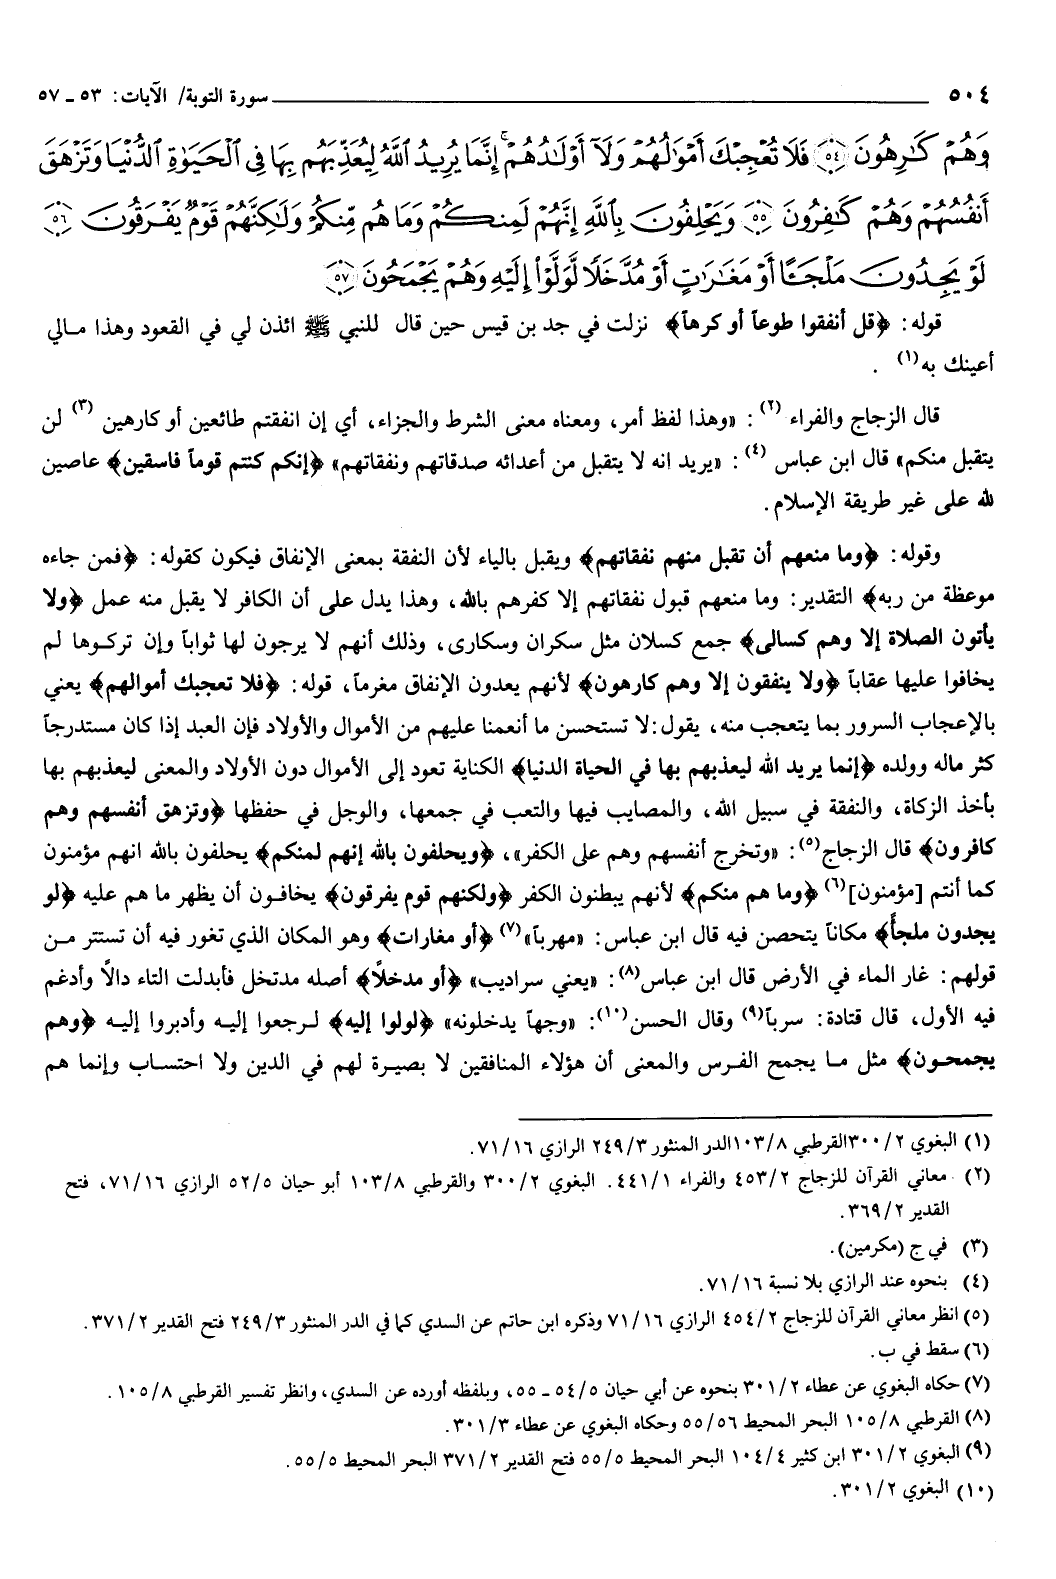 ٥٠٤ سورة التوبة/ الآيات: ٥٣ ـ ٥٧
وَهُمْ كَٰرِهُونَ ﴿٥٤﴾ فَلَا تُعْجِبْكَ أَمْوَٰلُهُمْ وَلَآ أَوْلَٰدُهُمْ ۚ إِنَّمَا يُرِيدُ ٱللَّهُ لِيُعَذِّبَهُم بِهَا فِى ٱلْحَيَوٰةِ ٱلدُّنْيَا وَتَزْهَقَ
أَنفُسُهُمْ وَهُمْ كَٰفِرُونَ ﴿٥٥﴾ وَيَحْلِفُونَ بِٱللَّهِ إِنَّهُمْ لَمِنكُمْ وَمَا هُم مِّنكُمْ وَلَٰكِنَّهُمْ قَوْمٌ يَفْرَقُونَ ﴿٥٦﴾
لَوْ يَجِدُونَ مَلْجَـًٔا أَوْ مَغَٰرَٰتٍ أَوْ مُدَّخَلًا لَّوَلَّوْا۟ إِلَيْهِ وَهُمْ يَجْمَحُونَ ﴿٥٧﴾
قوله: ﴿قل أنفقوا طوعاً أو كرهاً﴾ نزلت في جد بن قيس حين قال للنبي ﷺ ائذن لي في القعود وهذا مالي
أعينك به(١) .
قال الزجاج والفراء (٢) : «وهذا لفظ أمر، ومعناه معنى الشرط والجزاء، أي إن انفقتم طائعين أو كارهين (٣) لن
يتقبل منكم» قال ابن عباس (٤) : «يريد انه لا يتقبل من أعدائه صدقاتهم ونفقاتهم» ﴿إنكم كنتم قوماً فاسقين﴾ عاصين
لله على غير طريقة الإسلام.
وقوله: ﴿وما منعهم أن تقبل منهم نفقاتهم﴾ ويقبل بالياء لأن النفقة بمعنى الإنفاق فيكون كقوله: ﴿فمن جاءه
موعظة من ربه﴾ التقدير: وما منعهم قبول نفقاتهم إلا كفرهم بالله، وهذا يدل على أن الكافر لا يقبل منه عمل ﴿ولا
يأتون الصلاة إلا وهم كسالى﴾ جمع كسلان مثل سكران وسكارى، وذلك أنهم لا يرجون لها ثواباً وإن تركوها لم
يخافوا عليها عقاباً ﴿ولا ينفقون إلا وهم كارهون﴾ لأنهم يعدون الإنفاق مغرماً، قوله: ﴿فلا تعجبك أموالهم﴾ يعني
بالإعجاب السرور بما يتعجب منه، يقول: لا تستحسن ما أنعمنا عليهم من الأموال والأولاد فإن العبد إذا كان مستدرجاً
كثر ماله وولده ﴿إنما يريد الله ليعذبهم بها في الحياة الدنيا﴾ الكناية تعود إلى الأموال دون الأولاد والمعنى ليعذبهم بها
بأخذ الزكاة، والنفقة في سبيل الله، والمصايب فيها والتعب في جمعها، والوجل في حفظها ﴿وتزهق أنفسهم وهم
كافرون﴾ قال الزجاج(٥): «وتخرج أنفسهم وهم على الكفر»، ﴿ويحلفون بالله إنهم لمنكم﴾ يحلفون بالله انهم مؤمنون
كما أنتم [مؤمنون](٦) ﴿وما هم منكم﴾ لأنهم يبطنون الكفر ﴿ولكنهم قوم يفرقون﴾ يخافون أن يظهر ما هم عليه ﴿لو
يجدون ملجأ﴾ مكاناً يتحصن فيه قال ابن عباس: «مهرباً»(٧) ﴿أو مغارات﴾ وهو المكان الذي تغور فيه أن تستتر من
قولهم: غار الماء في الأرض قال ابن عباس(٨): «يعني سراديب» ﴿أو مدخلاً﴾ أصله مدتخل فأبدلت التاء دالاً وأدغم
فيه الأول، قال قتادة: سرباً(٩) وقال الحسن(١٠): «وجهاً يدخلونه» ﴿لولوا إليه﴾ لرجعوا إليه وأدبروا إليه ﴿وهم
يجمحون﴾ مثل ما يجمح الفرس والمعنى أن هؤلاء المنافقين لا بصيرة لهم في الدين ولا احتساب وإنما هم
(١) البغوي ٣٠٠/٢ القرطبي ١٠٣/٨ الدر المنثور ٢٤٩/٣ الرازي ٧١/١٦.
(٢) معاني القرآن للزجاج ٤٥٣/٢ والفراء ٤٤١/١. البغوي ٣٠٠/٢ والقرطبي ١٠٣/٨ أبو حيان ٥٢/٥ الرازي ٧١/١٦، فتح
القدير ٣٦٩/٢.
(٣) في ج (مكرمين).
(٤) بنحوه عند الرازي بلا نسبة ٧١/١٦.
(٥) انظر معاني القرآن للزجاج ٤٥٤/٢ الرازي ٧١/١٦ وذكره ابن حاتم عن السدي كما في الدر المنثور ٢٤٩/٣ فتح القدير ٣٧١/٢.
(٦) سقط في ب.
(٧) حكاه البغوي عن عطاء ٣٠١/٢ بنحوه عن أبي حيان ٥٤/٥ ـ ٥٥، وبلفظه أورده عن السدي، وانظر تفسير القرطبي ١٠٥/٨.
(٨) القرطبي ١٠٥/٨ البحر المحيط ٥٥/٥٦ وحكاه البغوي عن عطاء ٣٠١/٣.
(٩) البغوي ٣٠١/٢ ابن كثير ١٠٤/٤ البحر المحيط ٥٥/٥ فتح القدير ٣٧١/٢ البحر المحيط ٥٥/٥.
(١٠) البغوي ٣٠١/٢.